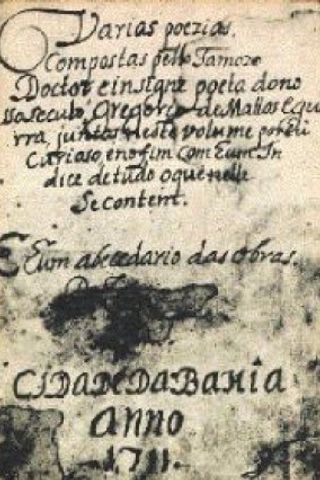 Varias poezias.
Compostas pello famozo
Doctor e insigne poeta dono
sso seculo, Gregorio de Mattos e Gue
rra, juntas neste volume por hũ
Curioso, e no fim com hum In
dice de tudo o que nelle
Se content.
E hum abecedario das obras.
CIDADE DA BAHIA
Anno
1711.